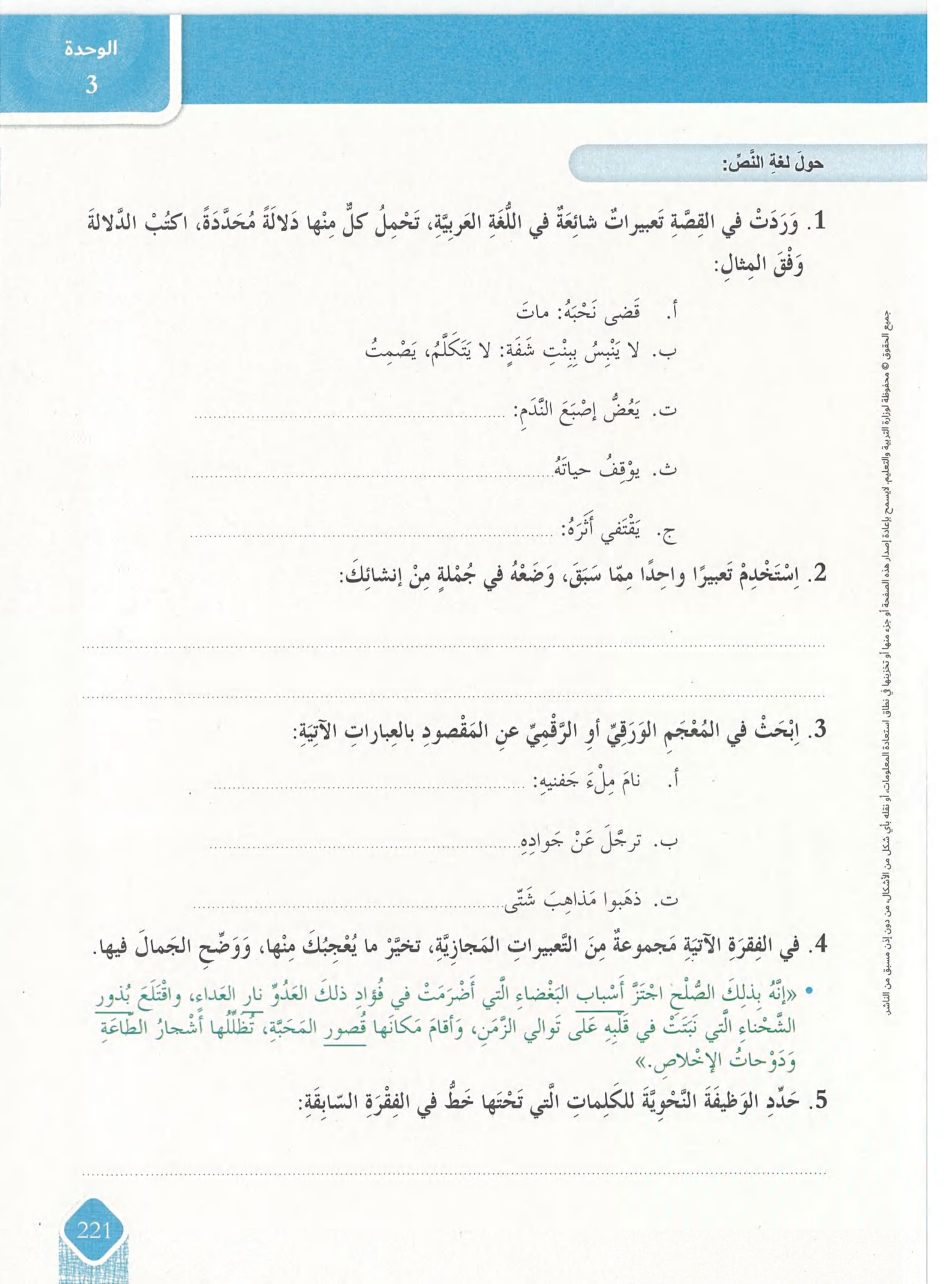 الوحدة
3
حولَ لغةِ النَّصِّ:
1. وَرَدَتْ في القِصَّةِ تَعبيراتٌ شائِعَةٌ في اللُّغَةِ العَربِيَّةِ، تَحْمِلُ كلٌّ مِنْها دَلالَةً مُحَدَّدَةً، اكتُبْ الدَّلالةَ
وَفْقَ المِثالِ:
أ. قَضى نَحْبَهُ: ماتَ
ب. لا يَنْبِسُ بِبِنْتِ شَفَةٍ: لا يَتَكَلَّمُ، يَصْمِتُ
ت. يَعُضُّ إصْبَعَ النَّدَمِ: ........................
ث. يوْقِفُ حياتَهُ........................
ج. يَقْتَفي أَثَرَهُ: ........................
2. اِسْتَخْدِمْ تَعبيرًا واحِدًا مِمّا سَبَقَ، وَضَعْهُ في جُمْلةٍ مِنْ إنشائِكَ:
3. اِبْحَثْ في المُعْجَمِ الوَرَقِيِّ أوِ الرَّقْمِيِّ عنِ المَقْصودِ بالعِباراتِ الآتِيَةِ:
أ. نامَ مِلْءَ جَفنيهِ: ........................
ب. ترجَّلَ عَنْ جَوادِهِ........................
ت. ذهَبوا مَذاهِبَ شَتّى........................
4. في الفِقرَةِ الآتيَةِ مَجموعةٌ مِنَ التَّعبيراتِ المَجازِيَّةِ، تخيَّرْ ما يُعْجِبُكَ مِنْها، وَوَضِّحِ الجَمالَ فيها.
• «إنَّهُ بِذلِكَ الصُّلْحِ اجْتَزَّ أَسْباب البَغْضاءِ الَّتي أَضْرَمَتْ في فُؤادِ ذلكَ العَدُوِّ نار العَداءِ، واقْتَلَعَ بُذور
الشَّحْناءِ الَّتي نَبَتَتْ في قَلْبِهِ عَلى تَوالي الزَّمَنِ، وَأقامَ مَكانَها قُصور المَحَبَّةِ، تُظَلِّلُها أشْجارُ الطّاعَةِ
وَدَوْحاتُ الإخْلاصِ.»
5. حَدِّدِ الوَظيفَةَ النَّحْوِيَّةَ للكَلِماتِ الَّتي تَحْتَها خَطٌّ في الفِقْرَةِ السّابِقَةِ:
221
جميع الحقوق © محفوظة لوزارة التربية والتعليم. لايسمح بإعادة إصدار هذه الصفحة أو جزء منها أو تخزينها في نطاق استعادة المعلومات، أو نقله بأي شكل من الأشكال، من دون إذن مسبق من الناشر.